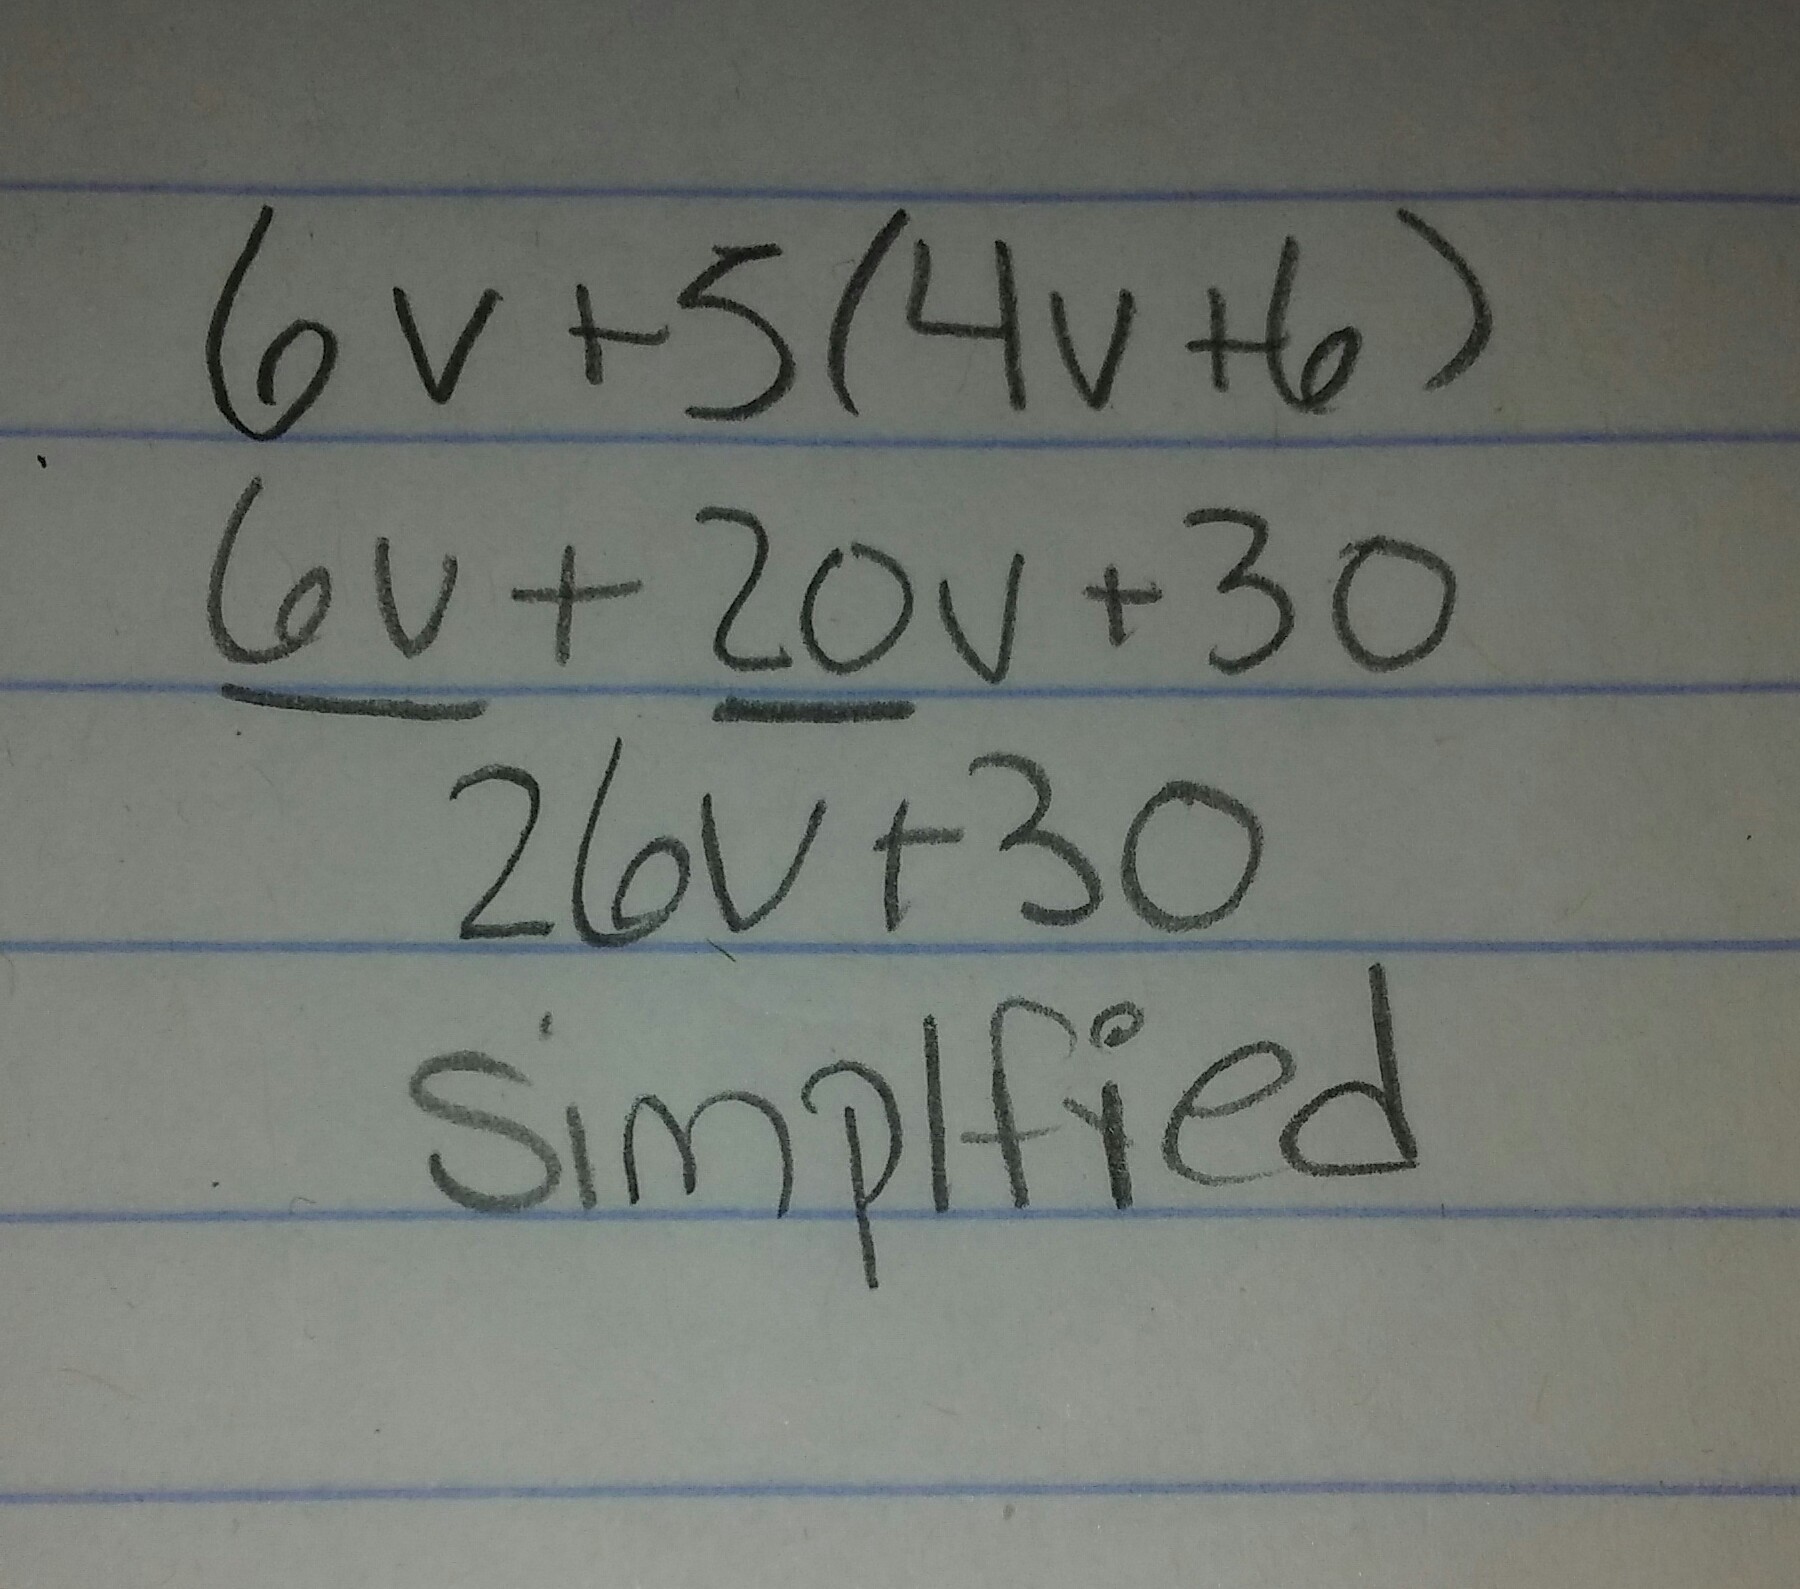 6v+5(4v+6)
6v+20v+30
26v+30
Simplfied